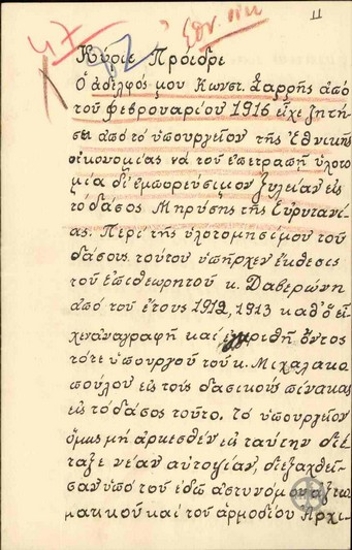 11
47
Κύριε Πρόεδρε
Ο αδελφός μου Κωνστ. Σαρρής από
του φεβρουαρίου 1916 είχε ζητή
σει από το υπουργείον της Εθνικής
οικονομίας να του επετραπή υλοτο
μία δι' εμπορεύσιμον ξυλείαν εις
το δάσος Μηρύσης της Ευρυτανί
ας. Περί της υλοτομησίμου του
δάσους τούτου υπήρχεν έκθεσις
του επιθεωρητού κ. Δαβερώνη
από του έτους 1912, 1913 καθ' ό εί
χεν αναγραφή και εγκριθή όντος
τότε υπουργού του κ. Μιχαλακο
πούλου εις τους δασικούς πίνακας
εις το δάσος τούτο. Το υπουργείον
όμως μη αρκεσθέν εις ταύτην διέ
ταξε νέαν αυτοψίαν, διεξαχθεί
σαν υπό του εδώ αστυνόμου αξιω
ματικού και του αρμοδίου Αρχι-